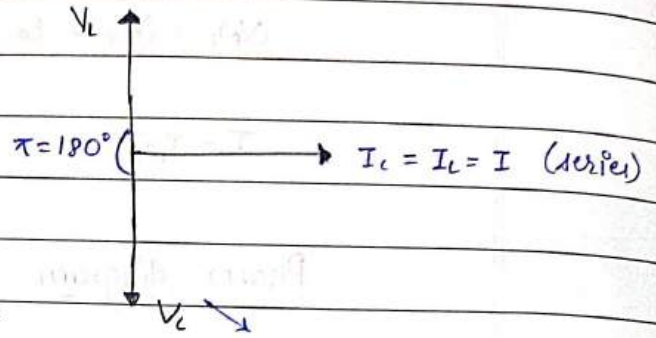 V_L
π = 180° I_C = I_L = I (series)
V_C